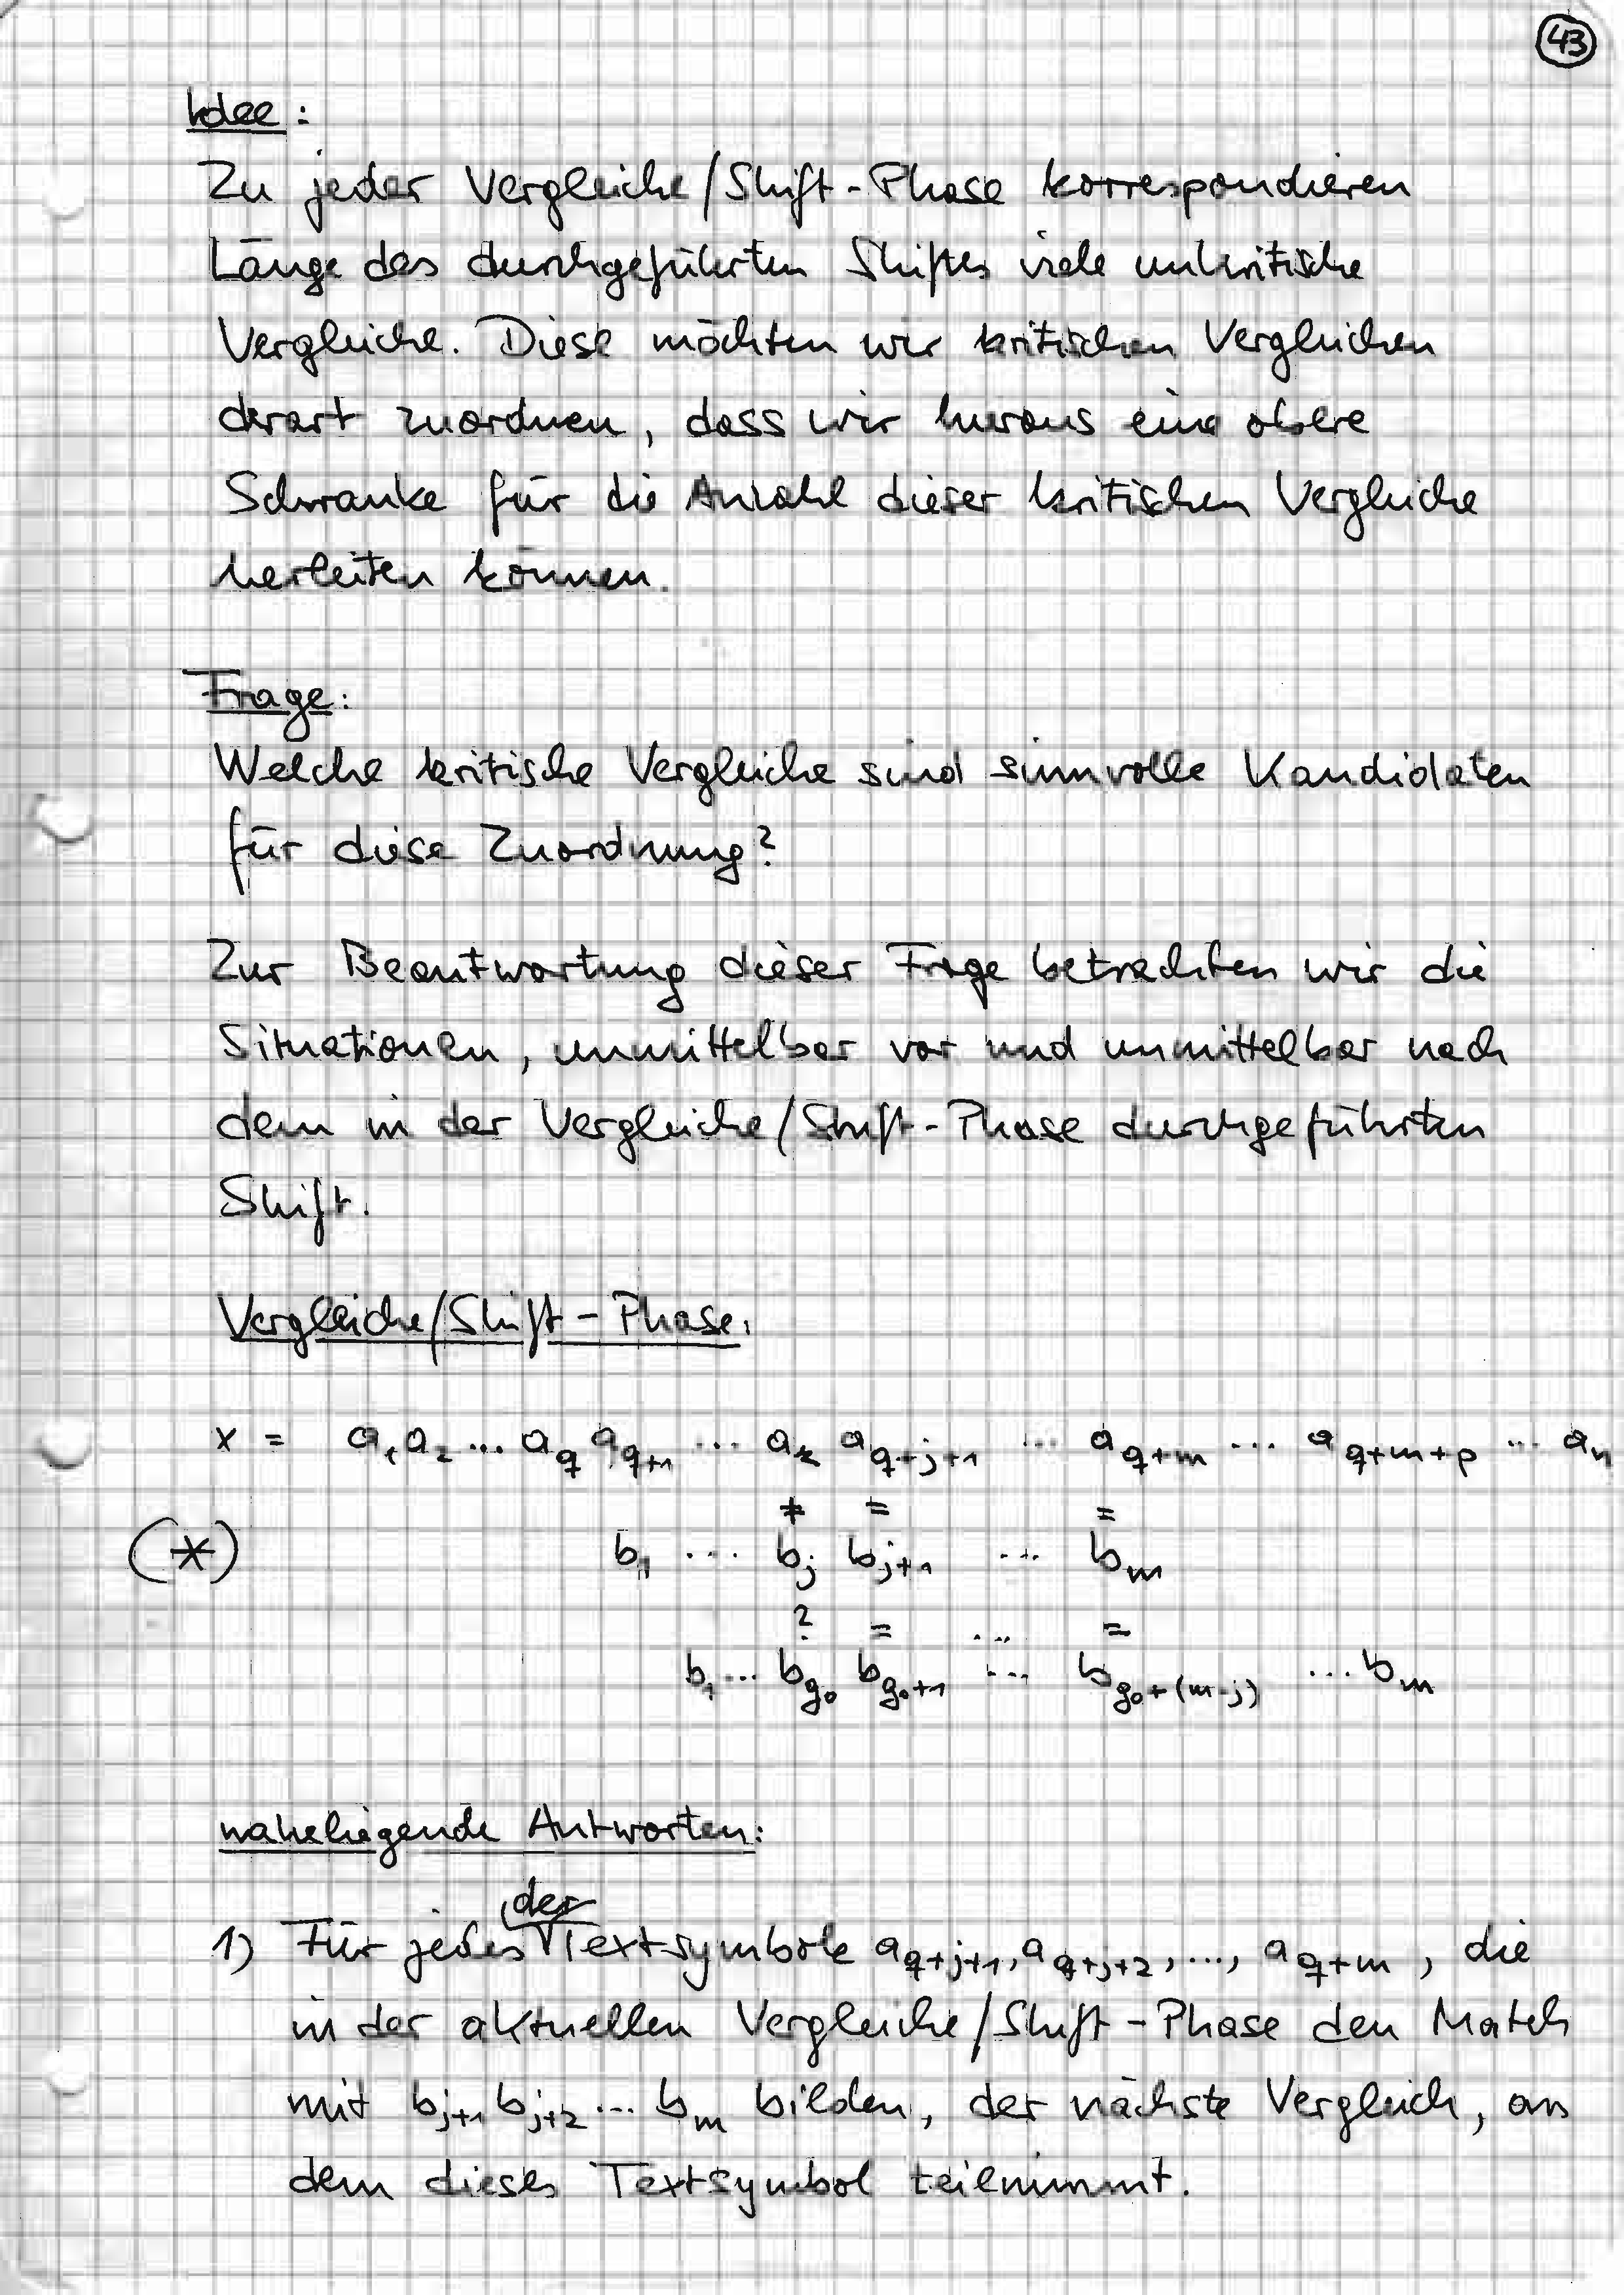 43
Idee:
Zu jeder Vergleiche/Shift-Phase korrespondieren
Länge des durchgeführten Shiftes viele unkritische
Vergleiche. Diese möchten wir kritischen Vergleichen
derart zuordnen, dass wir hieraus eine obere
Schranke für die Anzahl dieser kritischen Vergleiche
herleiten können.
Frage:
Welche kritische Vergleiche sind sinnvolle Kandidaten
für diese Zuordnung?
Zur Beantwortung dieser Frage betrachten wir die
Situationen, unmittelbar vor und unmittelbar nach
dem in der Vergleiche/Shift-Phase durchgeführten
Shift.
Vergleiche/Shift-Phase:
x = a₁ a₂ ... a_q a_{q+1} ... a_k a_{q+j+1} ... a_{q+m} ... a_{q+m+p} ... a_n
≠ = =
(*) b₁ ... b_j b_{j+1} ... b_m
? = ... =
b₁ ... b_{g₀} b_{g₀+1} ... b_{g₀+(m-j)} ... b_m
naheliegende Antworten:
1) Für jedes der Textsymbole a_{q+j+1}, a_{q+j+2}, ..., a_{q+m}, die
in der aktuellen Vergleiche/Shift-Phase den Match
mit b_{j+1} b_{j+2} ... b_m bilden, der nächste Vergleich, an
dem dieses Textsymbol teilnimmt.